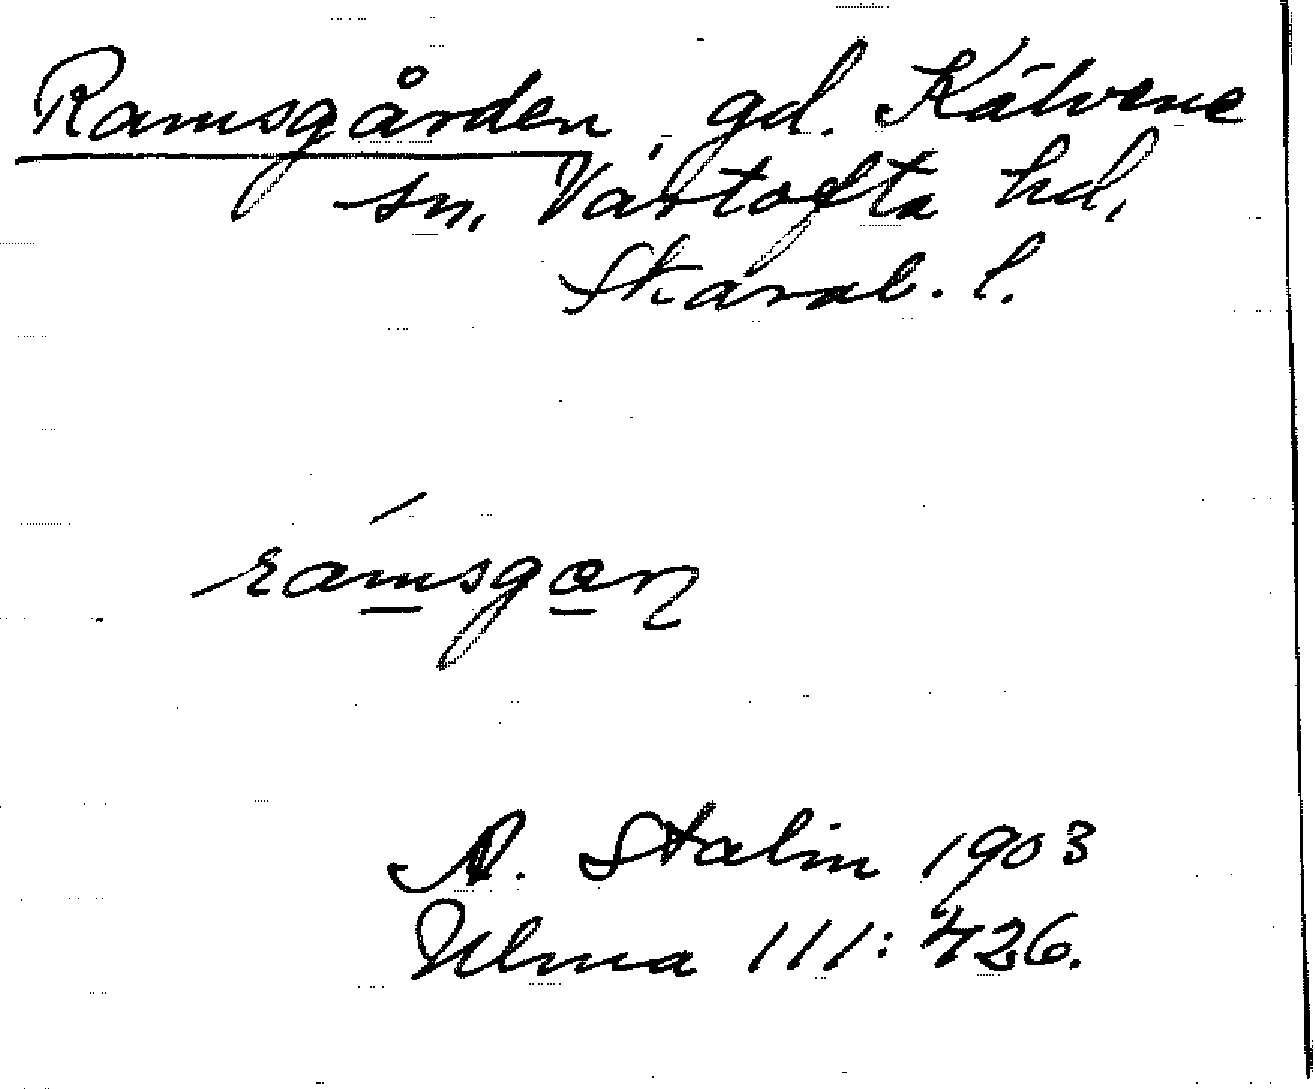 Ramsgården, gd. Kälvene
sn, Vartofta hd,
Skarab. l.
ramsgan
A. Stalin 1903
Ulma 111:426.